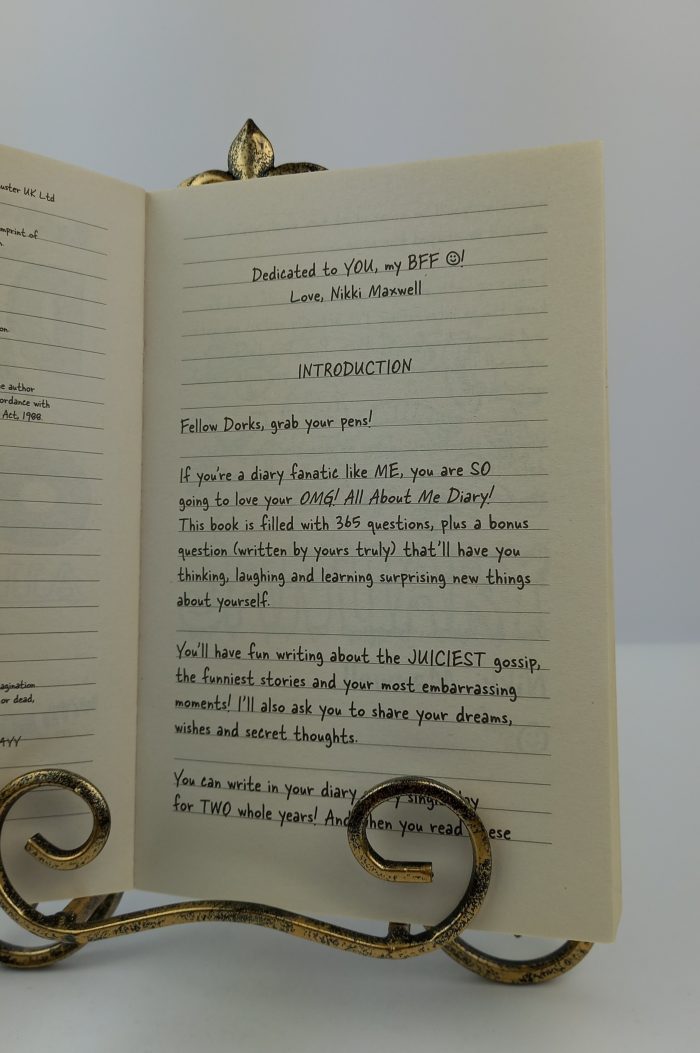 uster UK Ltd
mprint of
n.
on.
e author
ordance with
Act, 1988.
agination
or dead,
AVY
Dedicated to YOU, my BFF ☺!
Love, Nikki Maxwell
INTRODUCTION
Fellow Dorks, grab your pens!
If you're a diary fanatic like ME, you are SO
going to love your OMG! All About Me Diary!
This book is filled with 365 questions, plus a bonus
question (written by yours truly) that'll have you
thinking, laughing and learning surprising new things
about yourself.
You'll have fun writing about the JUICIEST gossip,
the funniest stories and your most embarrassing
moments! I'll also ask you to share your dreams,
wishes and secret thoughts.
You can write in your diary
for TWO whole years! And when you read